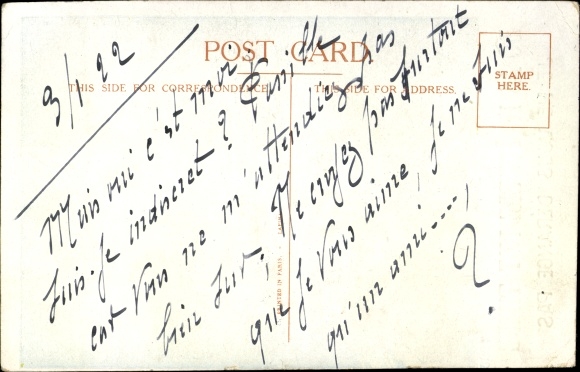 POST CARD
THIS SIDE FOR CORRESPONDENCE.
THIS SIDE FOR ADDRESS.
STAMP
HERE.
9/1 22
Mais oui c'est moi.
Suis-je indiscret ? Pareille
Vous ne m'attendiez pas
bien sur, Ne croyez pas surtout
que je Vous aime, je ne suis
qu'un ami ----,
PRINTED IN PARIS.